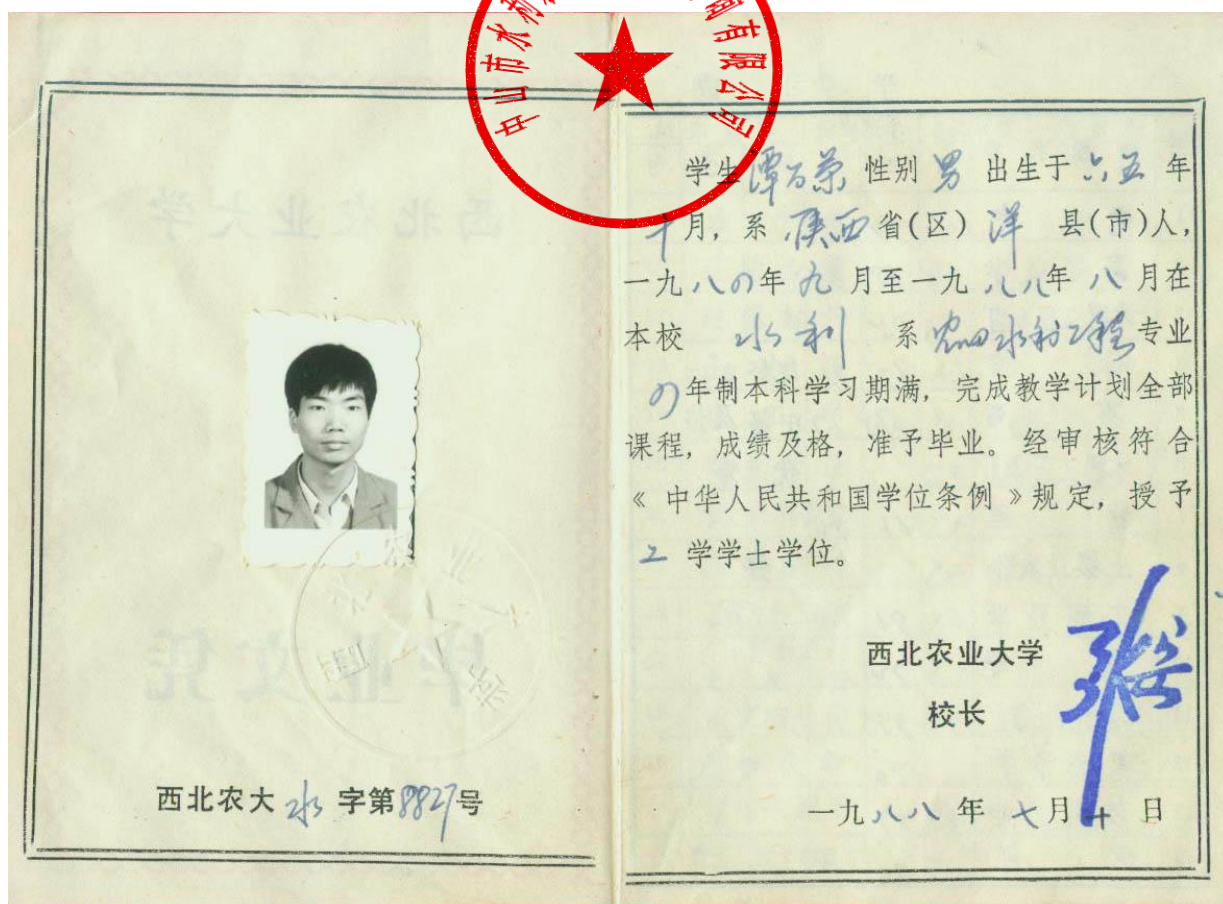 中山市水利
有限公司
西北农大水字第8827号
学生谭万荣 性别 男 出生于 六五 年
十月, 系 陕西 省(区) 洋 县(市)人,
一九八四年九月至一九八八年八月在
本校 水利 系 农田水利工程 专业
四年制本科学习期满, 完成教学计划全部
课程, 成绩及格, 准予毕业。经审核符合
《中华人民共和国学位条例》规定, 授予
工 学学士学位。
西北农业大学
校长
一九八八年 七月 十 日